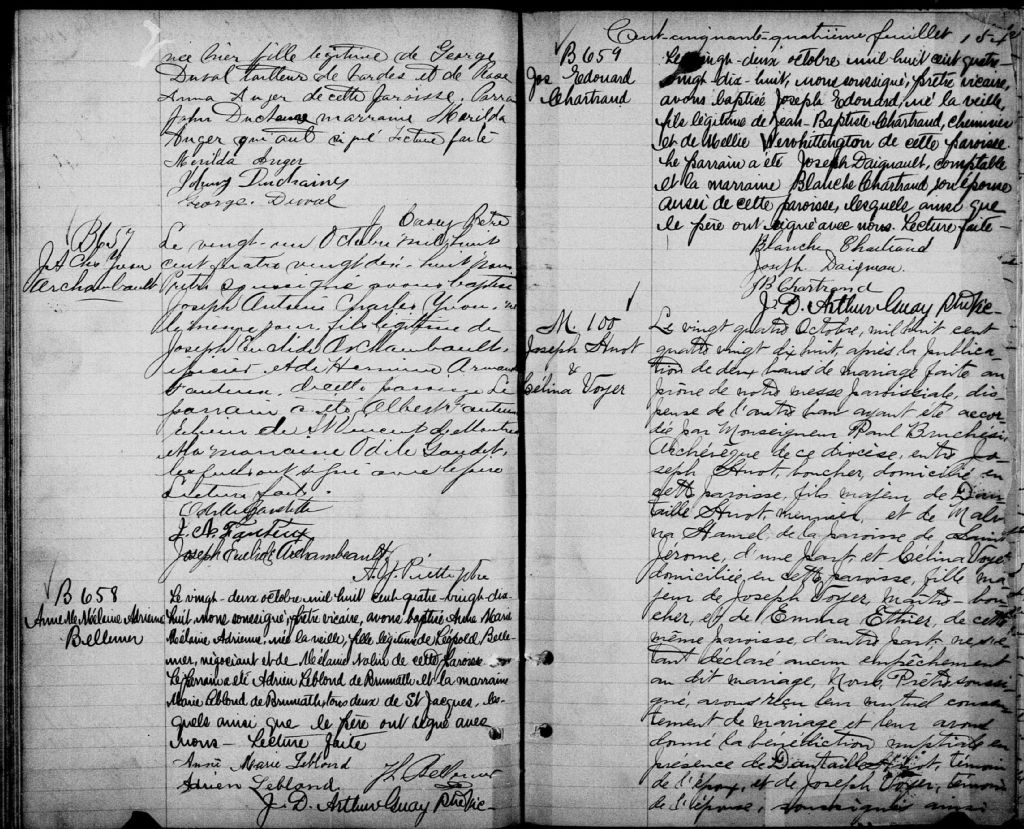 née hier fille légitime de George
Duval tailleur de hardes et de Rose
Anna Anger de cette paroisse. Parrain
John Duchesne marraine Merilda
Anger qui ont signé Lecture faite
Merilda Anger
Johnny Duchaines
George Duval
J. Casey Ptre
B 657
J A Chs Yvon
Archambault
Le vingt-un Octobre mil huit
cent quatre vingt dix-huit nous
Prêtre soussigné avons baptisé
Joseph Antonio Charles Yvon, né
le même jour, fils légitime de
Joseph Euclide Archambault
épicier, et de Hermine Armande
Fauteux de cette paroisse Le
parrain a été Albert Fauteux
de St Vincent de Montréal
et la marraine Odile Gaudet,
lesquels ont signé avec le père
Lecture faite.
J. A. Fauteux
Joseph Euclide Archambeault
B 658
Anne Me Mélaine Adrienne
Bellemer
Le vingt-deux octobre mil huit cent quatre-vingt-dix-
huit, nous soussigné, prêtre vicaire, avons baptisé Anne Marie
Mélaine Adrienne née la veille, fille légitime de Léopold Belle-
mer, négociant et de Mélaine Nolin de cette paroisse
Le parrain a été Adrien Leblond de Brumath et la marraine
Marie Leblond de Brumath, tous deux de St Jacques, les-
quels ainsi que le père ont signé avec
nous - Lecture faite
Anne Marie Leblond
Adrien Leblond
J. D. Arthur Quay Ptre Vic-
Cent-cinquante-quatrième feuillet 154
B 659
Jos Edouard
Chartrand
Le vingt-deux octobre mil huit cent quatre-
vingt-dix-huit, nous soussigné, prêtre vicaire,
avons baptisé Joseph Edouard, né la veille,
fils légitime de Jean-Baptiste Chartrand, cheminier
et de Mellie Wervhittengton de cette paroisse
Le parrain a été Joseph Daignault, comptable
et la marraine Blanche Chartrand son épouse
aussi de cette paroisse, lesquels ainsi que
le père ont signé avec nous. Lecture faite -
Blanche Chartrand
Joseph Daignau
JB Chartrand
J. D. Arthur Quay Ptre Vic-
M. 100
Joseph Huot
&
Célina Voyer
Le vingt quatre Octobre, mil huit cent
quatre vingt dix huit, après la publica-
tion de deux bans de mariage faite au
prône de notre messe paroissiale, dis-
pense de l'autre ban ayant été accor-
dée par Monseigneur Paul Bruchési,
Archevêque de ce diocèse, entre Jo-
seph Huot, boucher, domicilié en
cette paroisse, fils majeur de Dan-
taille Huot, menuisier, et de Malvi-
na Hamel, de la paroisse de Saint
Jérome, d'une part, et Célina Voyer
domiciliée en cette paroisse, fille ma-
jeur de Joseph Voyer, maître-bou-
cher, et de Emma Ethier, de cette
même paroisse, d'autre part, ne s'é-
tant déclaré aucun empêchement
au dit mariage, Nous, Prêtre soussi-
gné, avons reçu leur mutuel consen-
tement de mariage et leur avons
donné la bénédiction nuptiale en
présence de Dantaille Huot, témoin
de l'époux, et de Joseph Voyer, témoin
de l'épouse, soussignés ainsi